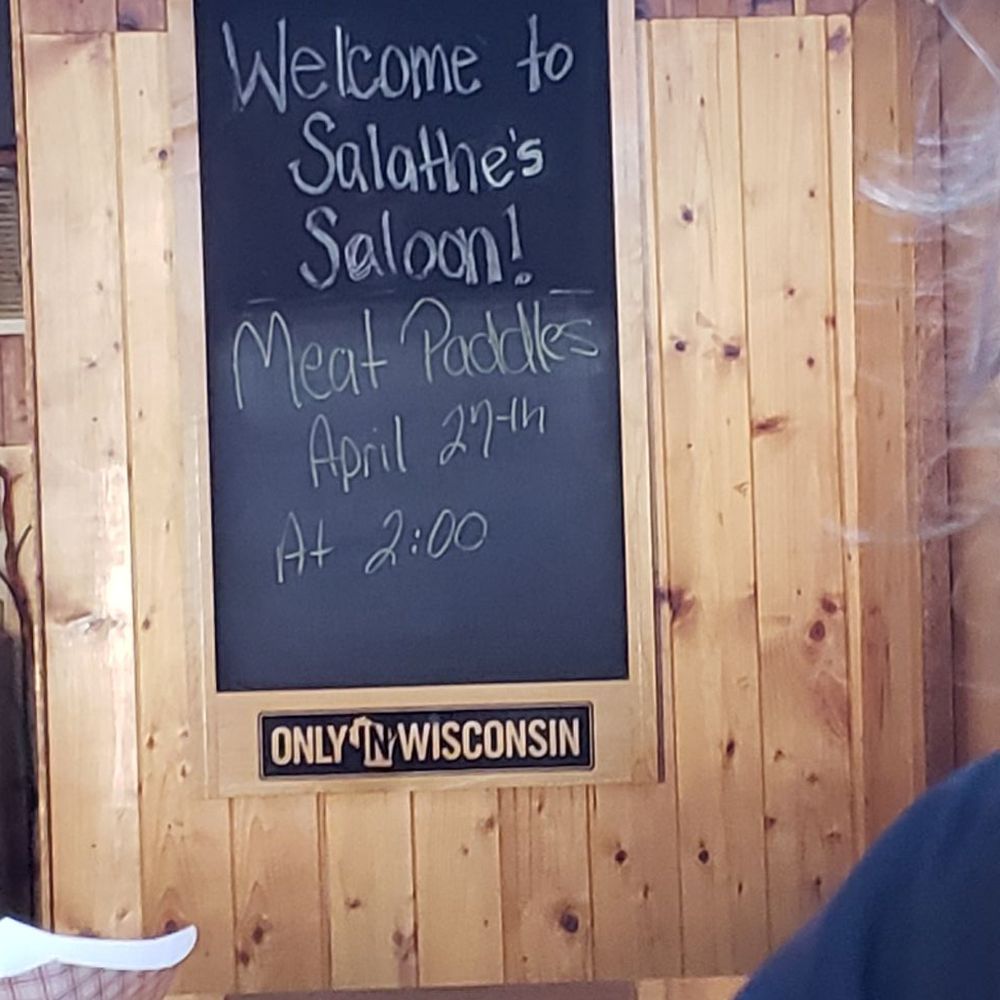 Welcome to
Salathe's
Saloon!
Meat Paddles
April 27th
At 2:00
ONLY IN WISCONSIN